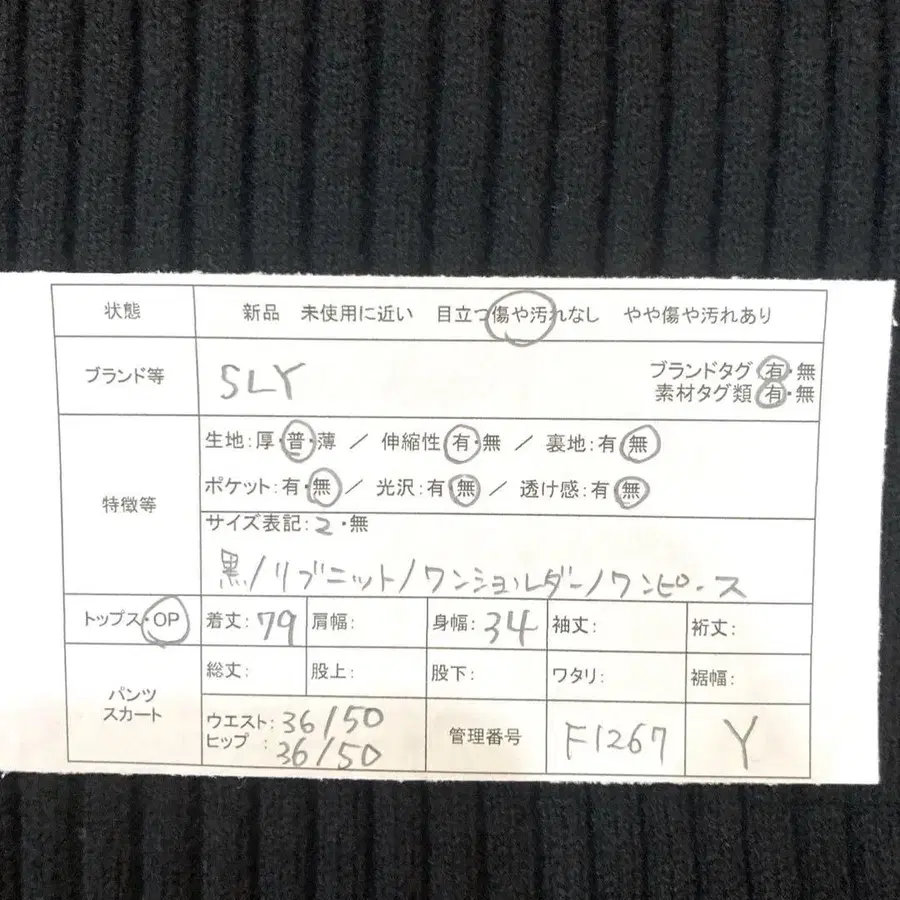 状態 新品 未使用に近い 目立つ傷や汚れなし やや傷や汚れあり
ブランド等 SLY ブランドタグ 有・無
素材タグ類 有・無
特徴等 生地:厚・普・薄 / 伸縮性 有・無 / 裏地:有 無
ポケット:有・無 / 光沢:有 無 / 透け感:有 無
サイズ表記:2・無
黒/リブニット/ワンショルダー/ワンピース
トップス・OP 着丈:79 肩幅: 身幅:34 袖丈: 裄丈:
パンツ
スカート
総丈: 股上: 股下: ワタリ: 裾幅:
ウエスト:36/50
ヒップ :36/50
管理番号 F1267 Y